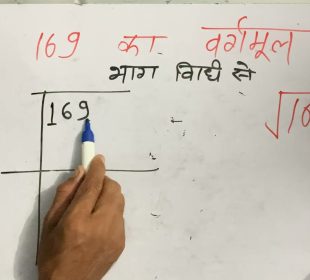 169 का वर्गमूल
भाग विधी से
169